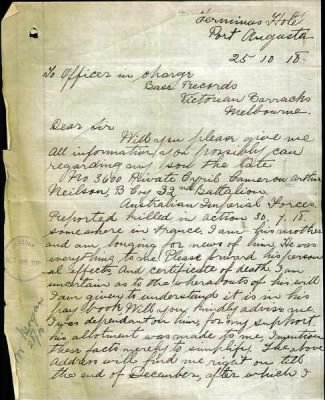 Terminus Hotel
Port Augusta
25 10 18.
To Officer in charge
Base Records
Victorian Barracks
Melbourne.
Dear Sir
Will you please give me
all information you possibly can
regarding my son the late
No 3680 Private Cyril Cameron Arthur
Neilson, B Coy 32nd Battalion
Australian Imperial Forces.
Reported killed in action 30.7.18.
somewhere in France, I am his mother
and am longing for news of him, He was
everything to me Please forward his person
al effects, And certificate of death, I am
uncertain as to the whereabouts of his will
I am given to understand it is in his
pay book. Will you kindly advise me
I was dependant on him, for my support
his allotment was made to me, I mention
these facts merely to simplify. The above
address will find me right on till
the end of December, after which I